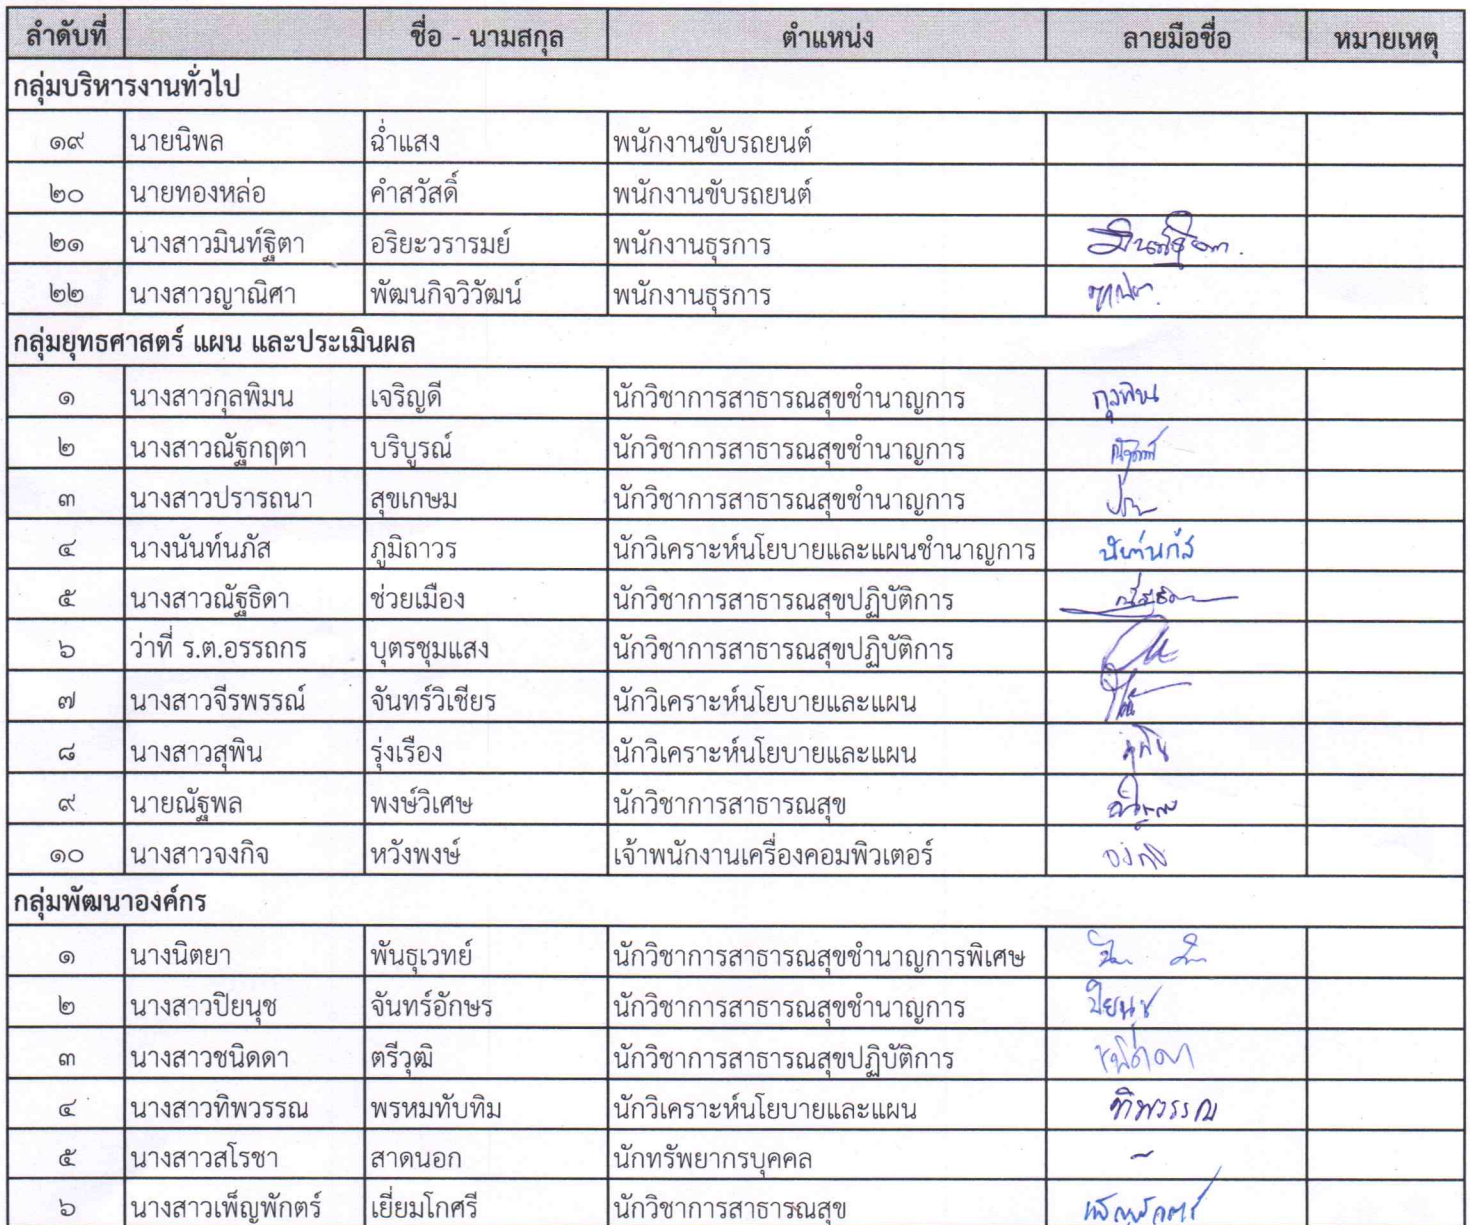 ลำดับที่ ชื่อ - นามสกุล ตำแหน่ง ลายมือชื่อ หมายเหตุ
กลุ่มบริหารงานทั่วไป
๑๙ นายนิพล ฉ่ำแสง พนักงานขับรถยนต์
๒๐ นายทองหล่อ คำสวัสดิ์ พนักงานขับรถยนต์
๒๑ นางสาวมินท์ฐิตา อริยะวรารมย์ พนักงานธุรการ
๒๒ นางสาวญาณิศา พัฒนกิจวิวัฒน์ พนักงานธุรการ
กลุ่มยุทธศาสตร์ แผน และประเมินผล
๑ นางสาวกุลพิมน เจริญดี นักวิชาการสาธารณสุขชำนาญการ
๒ นางสาวณัฐกฤตา บริบูรณ์ นักวิชาการสาธารณสุขชำนาญการ
๓ นางสาวปรารถนา สุขเกษม นักวิชาการสาธารณสุขชำนาญการ
๔ นางนันท์นภัส ภูมิถาวร นักวิเคราะห์นโยบายและแผนชำนาญการ นันท์นภัส
๕ นางสาวณัฐธิดา ช่วยเมือง นักวิชาการสาธารณสุขปฏิบัติการ
๖ ว่าที่ ร.ต.อรรถกร บุตรชุมแสง นักวิชาการสาธารณสุขปฏิบัติการ
๗ นางสาวจีรพรรณ์ จันทร์วิเชียร นักวิเคราะห์นโยบายและแผน
๘ นางสาวสุพิน รุ่งเรือง นักวิเคราะห์นโยบายและแผน สุพิน
๙ นายณัฐพล พงษ์วิเศษ นักวิชาการสาธารณสุข
๑๐ นางสาวจงกิจ หวังพงษ์ เจ้าพนักงานเครื่องคอมพิวเตอร์ จงกิจ
กลุ่มพัฒนาองค์กร
๑ นางนิตยา พันธุเวทย์ นักวิชาการสาธารณสุขชำนาญการพิเศษ
๒ นางสาวปิยนุช จันทร์อักษร นักวิชาการสาธารณสุขชำนาญการ ปิยนุช
๓ นางสาวชนิดดา ตรีวุฒิ นักวิชาการสาธารณสุขปฏิบัติการ ชนิดดา
๔ นางสาวทิพวรรณ พรหมทับทิม นักวิเคราะห์นโยบายและแผน ทิพวรรณ
๕ นางสาวสโรชา สาดนอก นักทรัพยากรบุคคล -
๖ นางสาวเพ็ญพักตร์ เยี่ยมโกศรี นักวิชาการสาธารณสุข เพ็ญพักตร์